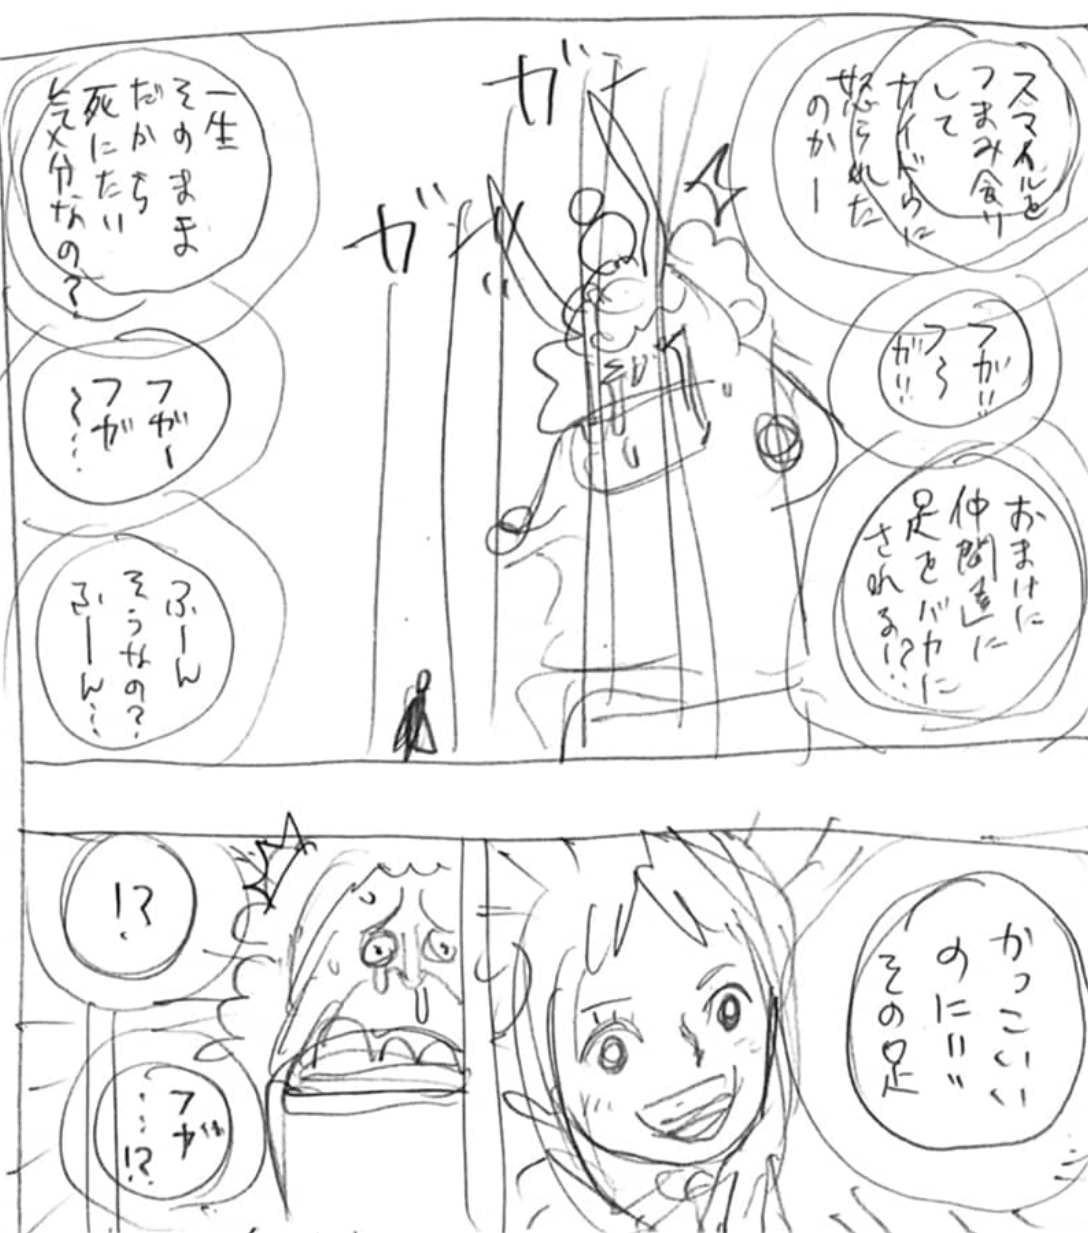 スマイルを
つまみ食い
して
カイドウに
怒られた
のかー
フガ!!
フ〜
ガ!!
おまけに
仲間達に
足をバカに
される!?
ガ
ガ
一生
そのまま
だから
死にたい
気分なの?
フガー
フガ
〜…
ふーん
そうなの?
ふーん…
かっこいい
のに!!
その足
!?
フガ
…!?